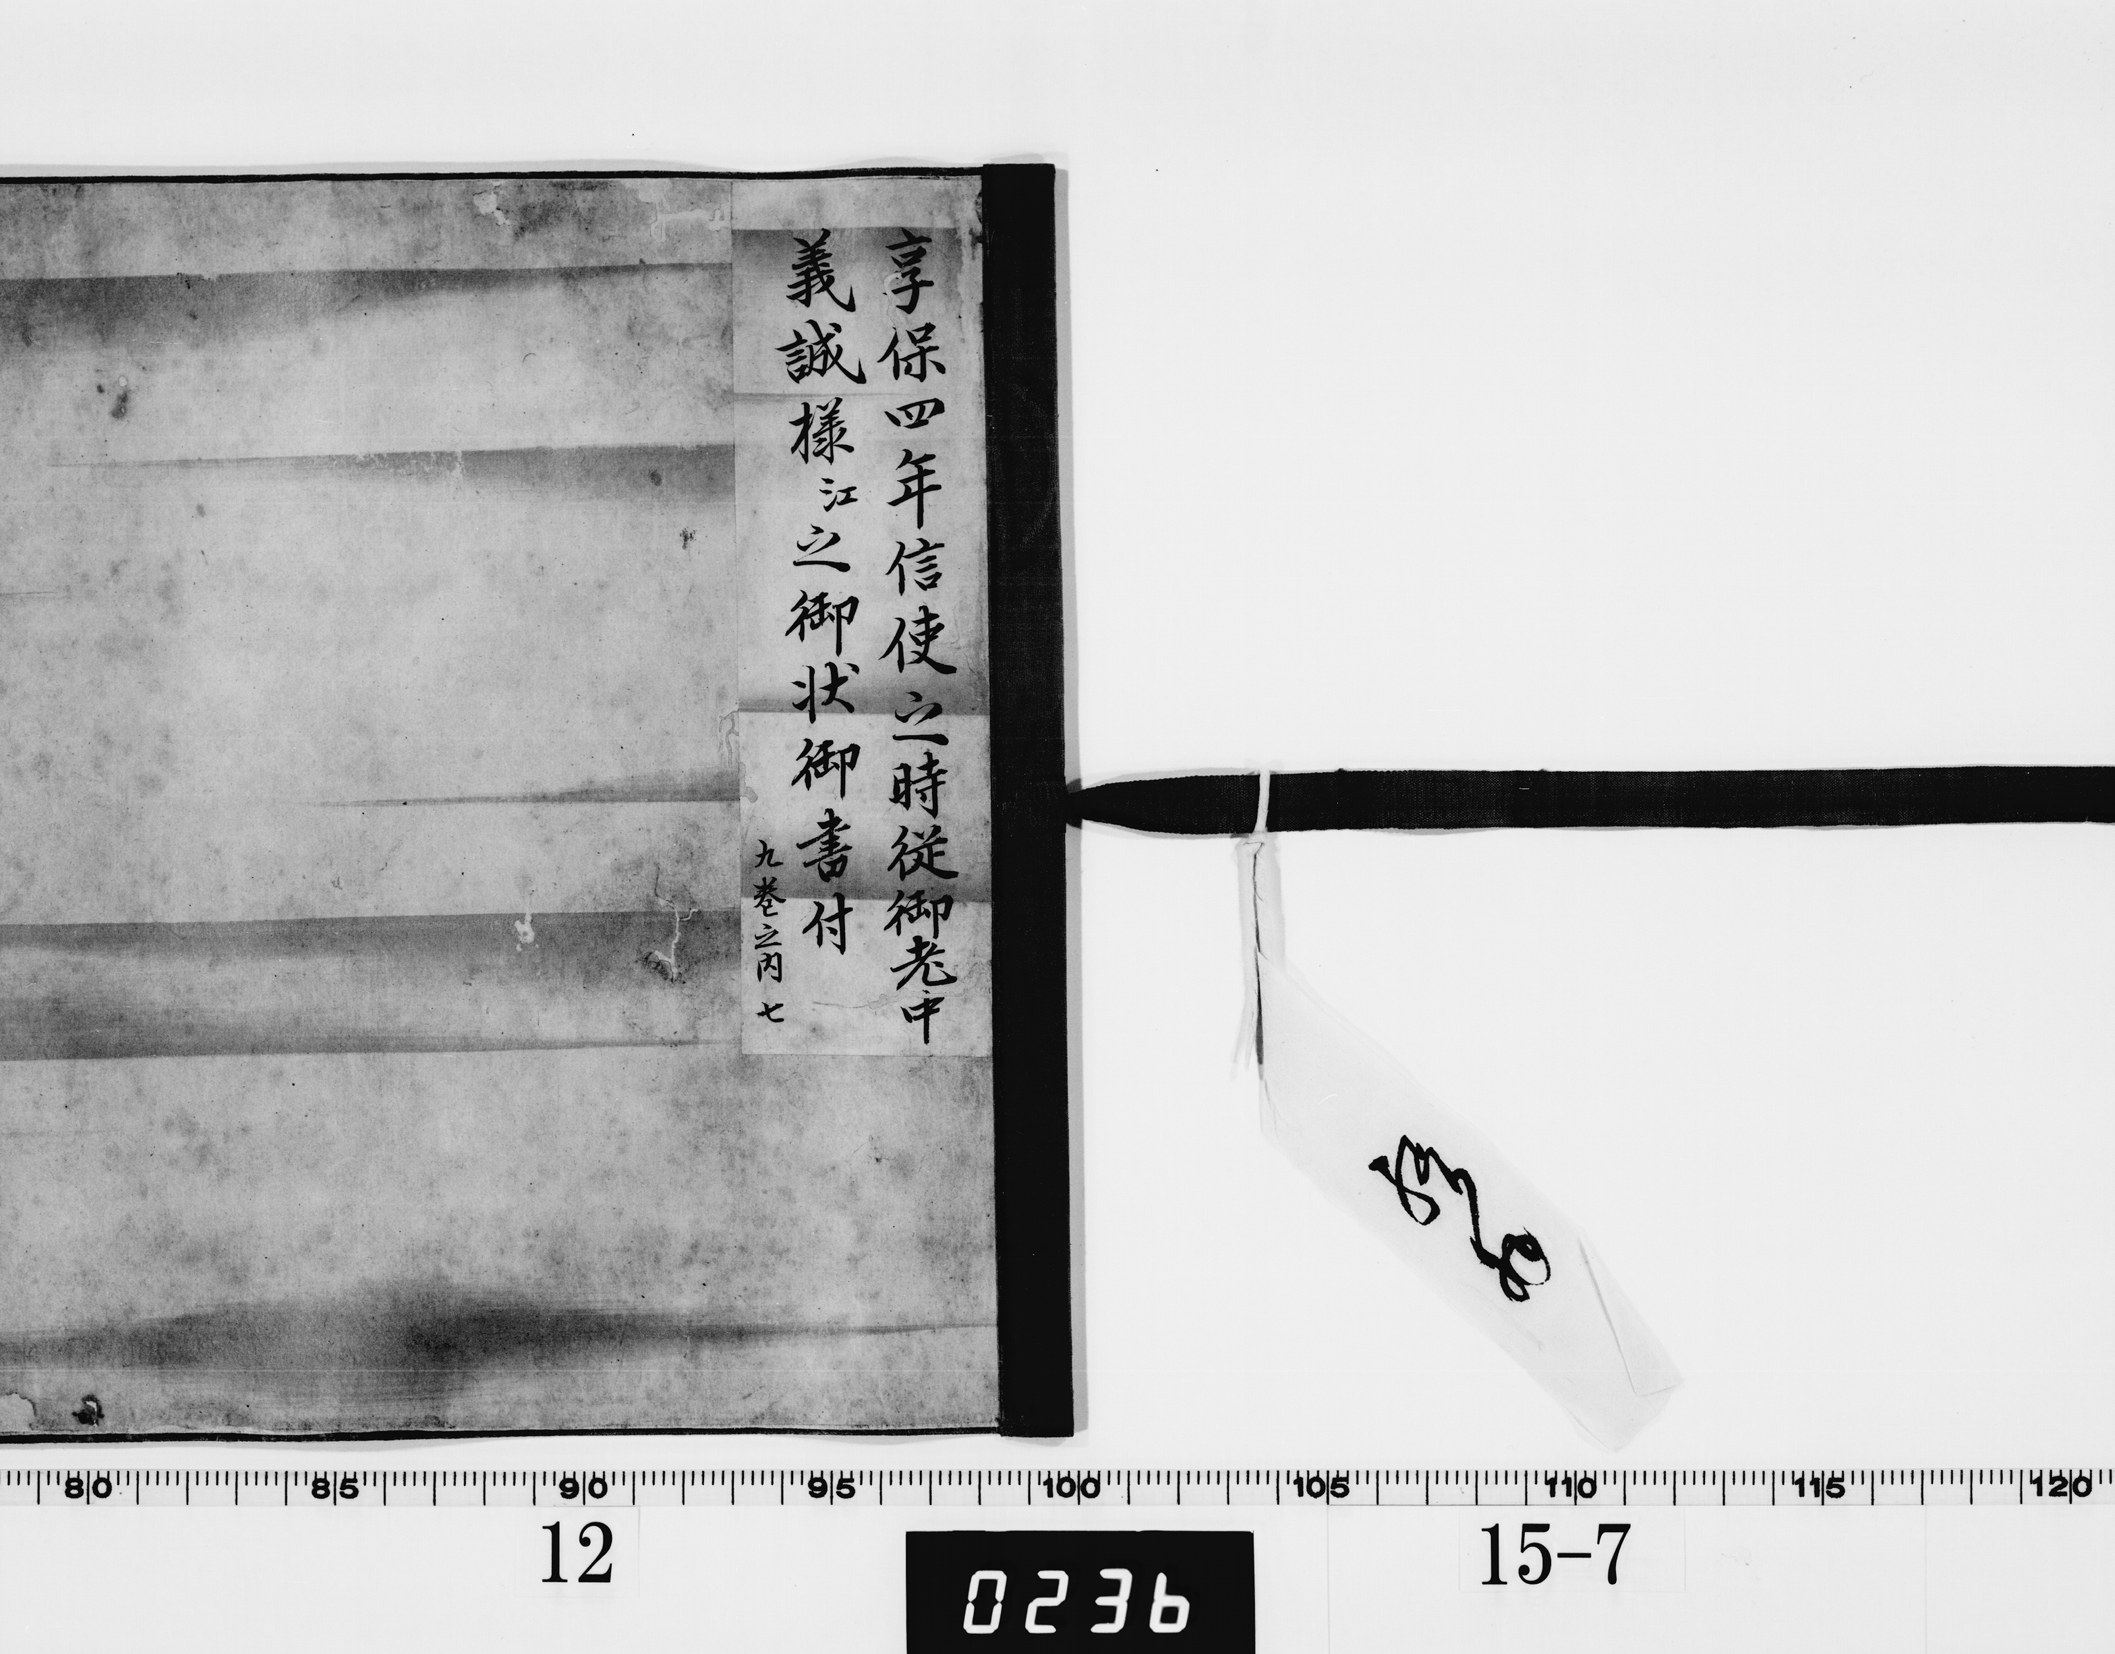 享保四年信使之時従御老中
義誠様江之御状御書付
九巻之内七
80 85 90 95 100 105 110 115 120
12
15-7
0236